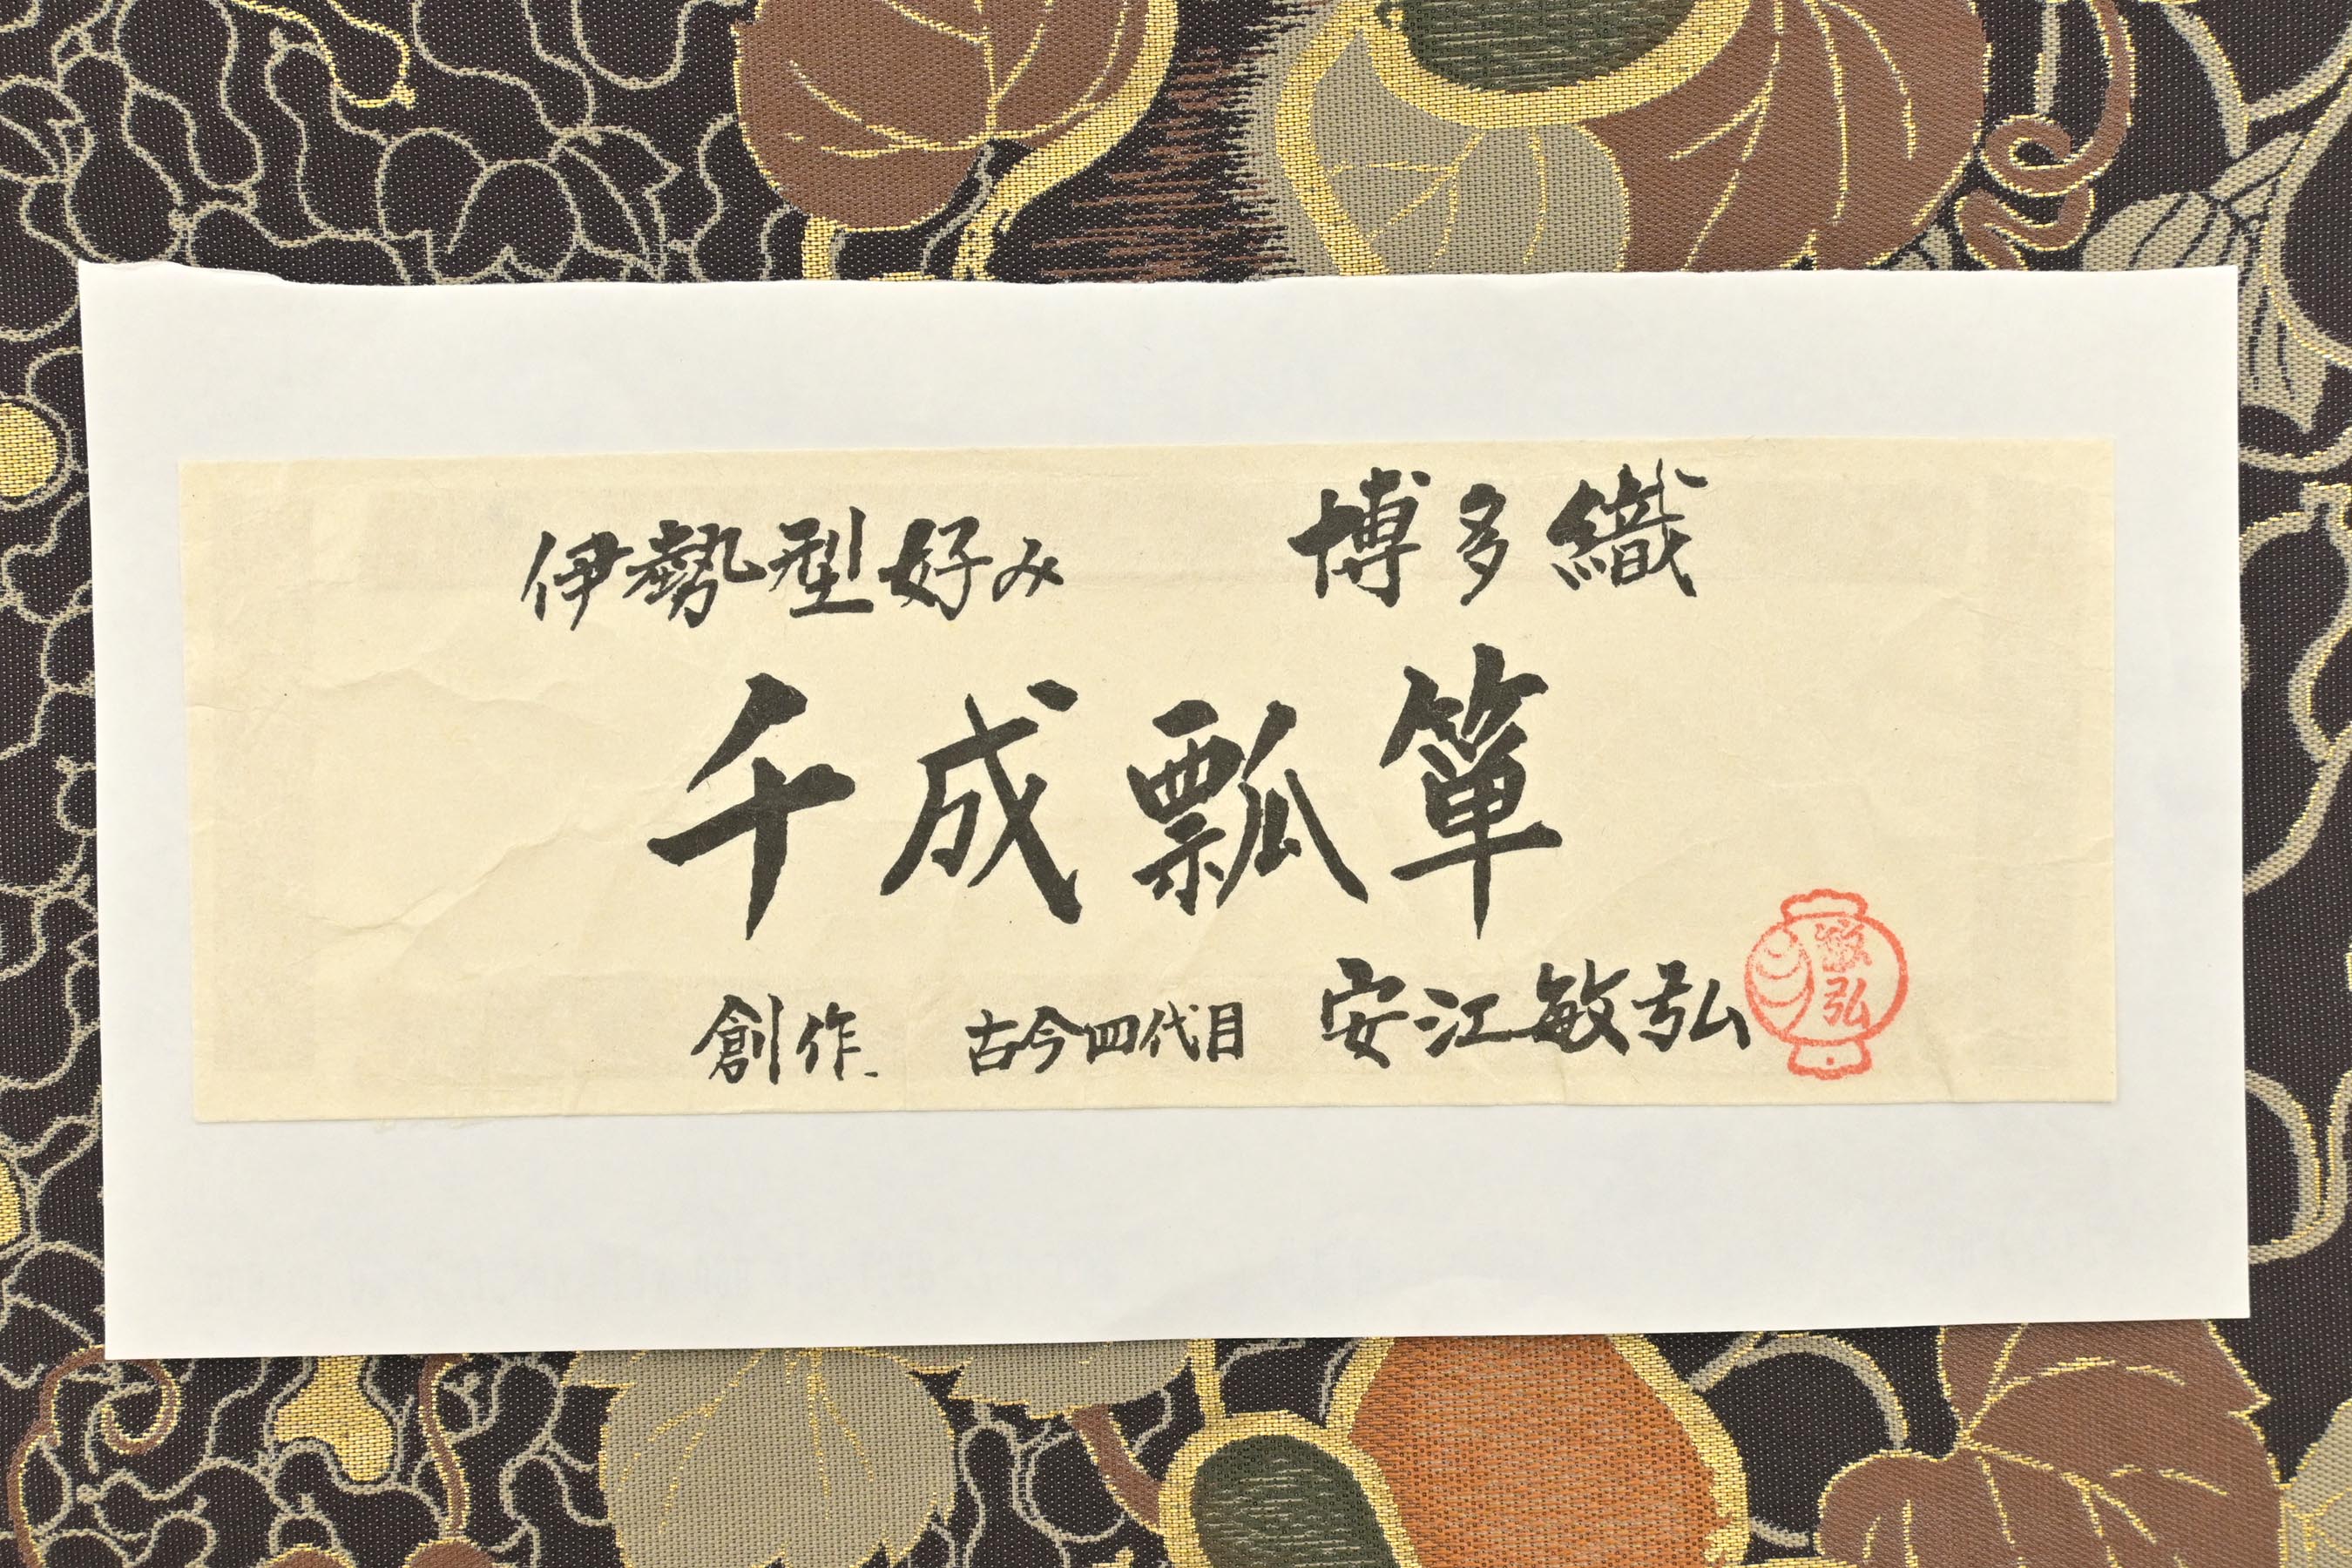 伊勢型好み 博多織
千成瓢箪
創作 古今四代目 安江敏弘
敏弘